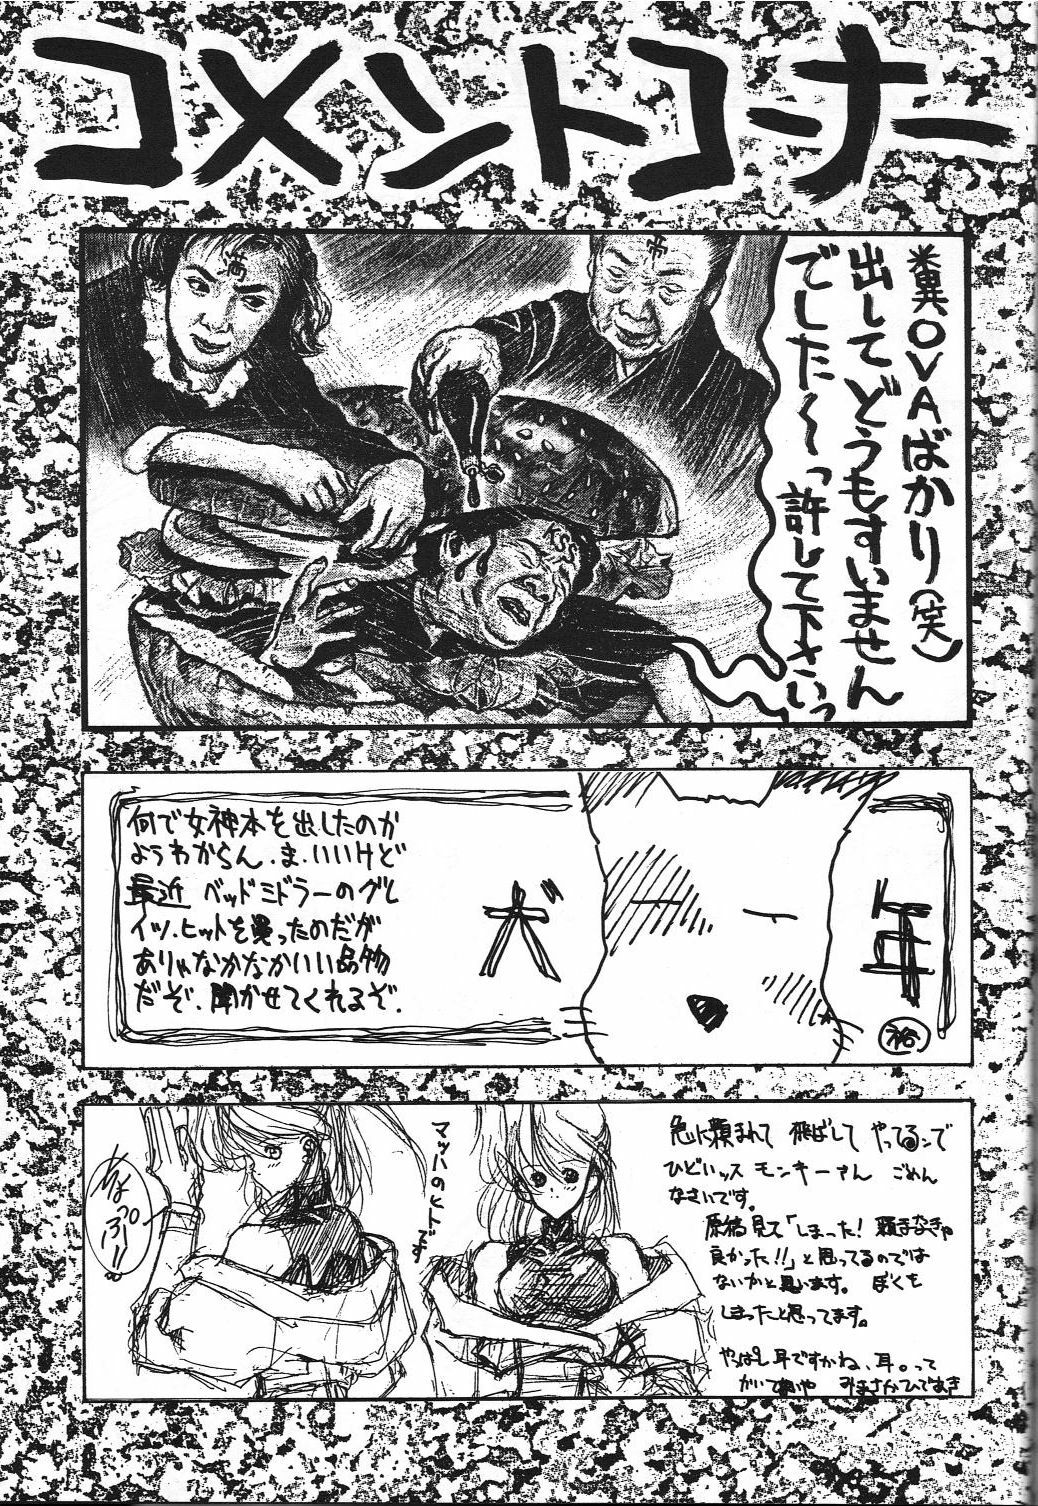 コメントコーナー
糞OVAばかり(笑)
出してどうもすいません
でした〜〜っ許して下さいっ
帝
KSS
何で女神本を出したのか
ようわからん.ま.いいけど
最近 ベッドミドラーのグレ
イツ.ヒットを買ったのだが
ありゃなかなかいい品物
だぞ.聞かせてくれるぞ.
マッハのヒトです
あちょっぷ!!
急に頼まれて 飛ばして やってるンで
ひどいッス モンキーさん ごめん
なさいです。
原稿見て「しまった! 頼まなきゃ
良かった!!」と思ってるのでは
ないかと思います。 ぼくも
しまったと思ってます。
やっぱし耳ですかね、耳。って
みまさかひであき